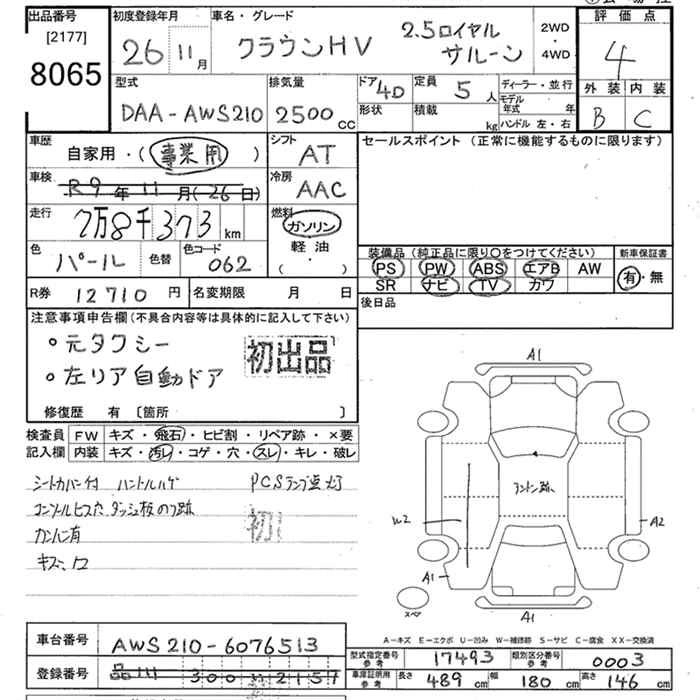 出品番号
[2177]
8065
初度登録年月
26 11月
車名・グレード
クラウンHV 2.5ロイヤル
サルーン
2WD
・
4WD
評価点
4
外装 内装
B C
型式
DAA-AWS210
排気量
2500cc
ドア
4D
形状
定員
5人
積載
kg
ディーラー・並行
モデル年式 年
ハンドル 左・右
車歴
自家用・(事業用)
車検
R9年11月(26日)
走行
7万8千373km
色
パール
色替
色コード
062
シフト
AT
冷房
AAC
燃料
ガソリン
・
軽・油
( )
セールスポイント (正常に機能するものに限ります)
装備品 (純正品に限り○をつけてください)
PS PW ABS エアB AW
SR ナビ TV カワ
新車保証書
有・無
後日品
R券 12710円
名変期限 月 日
注意事項申告欄(不具合内容等は具体的に記入して下さい)
・元タクシー
・左リア自動ドア
初出品
修復歴 有 〔箇所 〕
検査員
記入欄
FW キズ・飛石・ヒビ割・リペア跡・×要
内装 キズ・汚レ・コゲ・穴・スレ・キレ・破レ
シートカバー付 ハンドルハゲ PCSランプ点灯
コンソールビス穴 ダッシュ板のり跡
初
キズ、凹
A1
W2
A2
A1
A1
スペア
A-キズ E-エクボ U-凹み W-補修跡 S-サビ C-腐食 XX-交換済
車台番号
AWS210-6076513
登録番号
品川 300 2157
型式指定番号
参考
17493
類別区分番号
参考
0003
車庫証明用
参考
長さ 489cm 幅 180cm 高さ 146cm